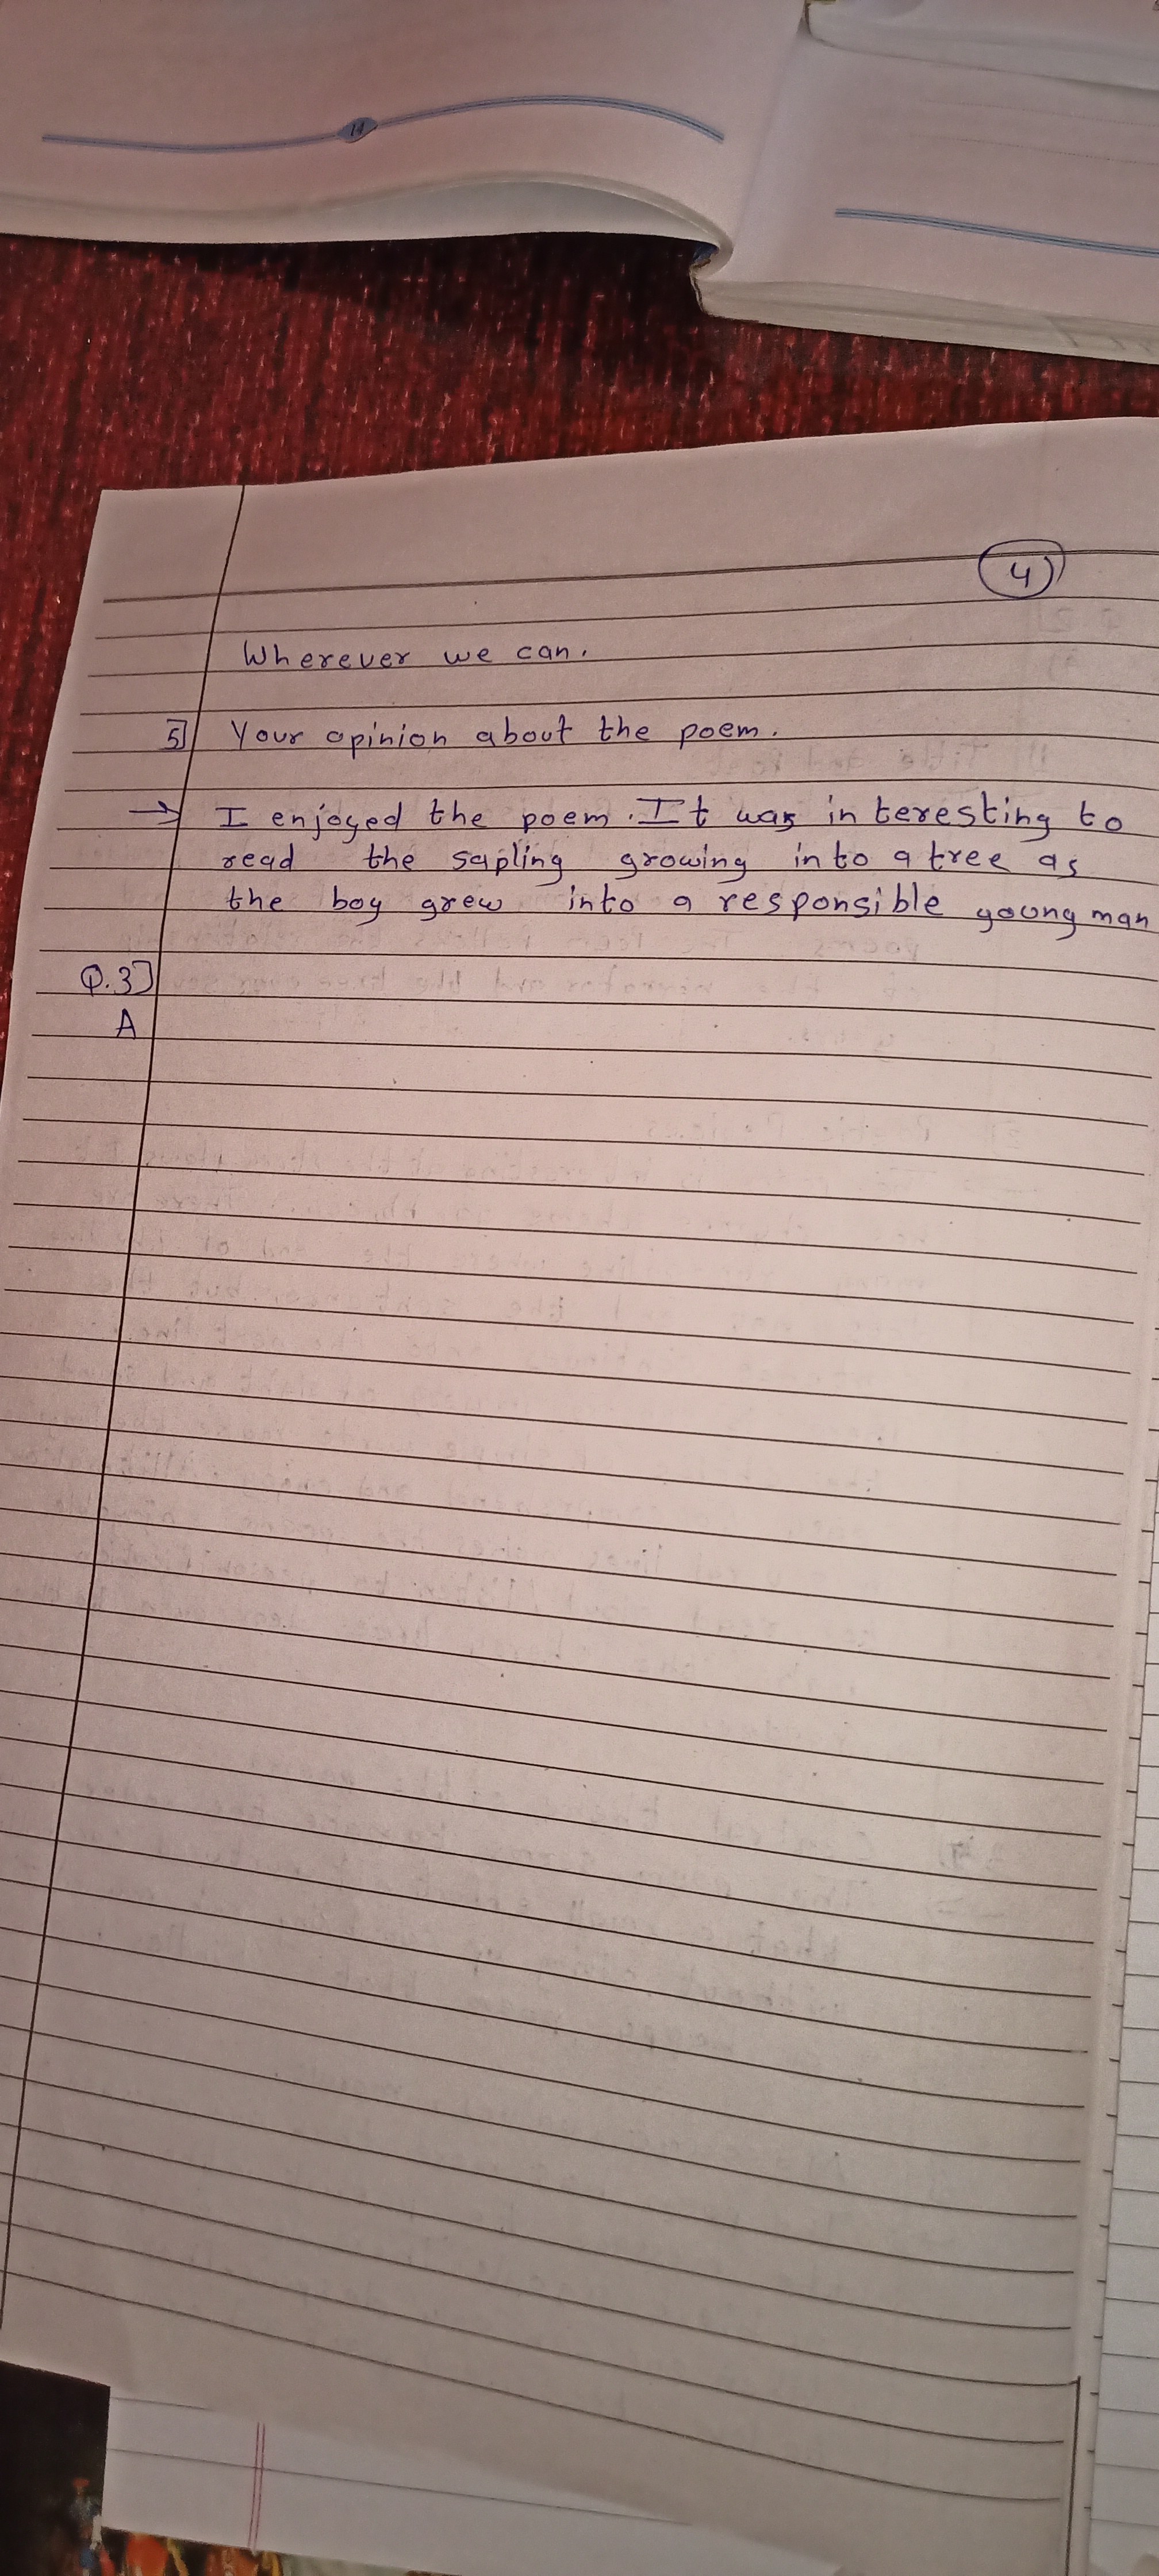 14
4
Wherever we can.
5] Your opinion about the poem.
→ I enjoyed the poem. It was interesting to
read the sapling growing into a tree as
the boy grew into a responsible young man
Q.3]
A